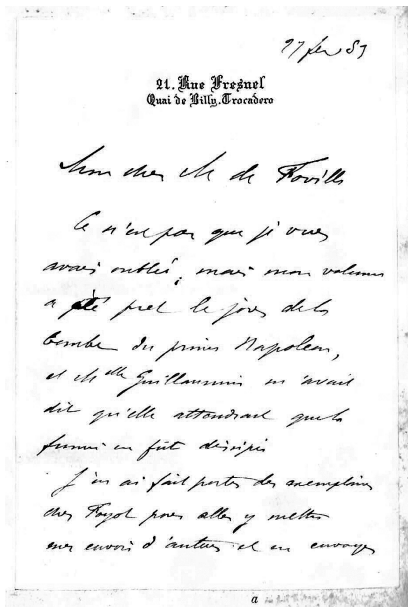 27 fev 83
21. Rue Fresnel
Quai de Billy. Trocadero
Mon cher M de Foville
Ce n'est pas que je vous
avais oublié, mais mon volume
a été prêt le jour de la
bombe du prince Napoléon,
et Melle Guillaumin m'avait
dit qu'elle attendrait que la
fumée en fût dissipée
J'en ai fait porter des exemplaires
chez Foyot pour aller y mettre
mes envois d'auteur et en envoyer
a